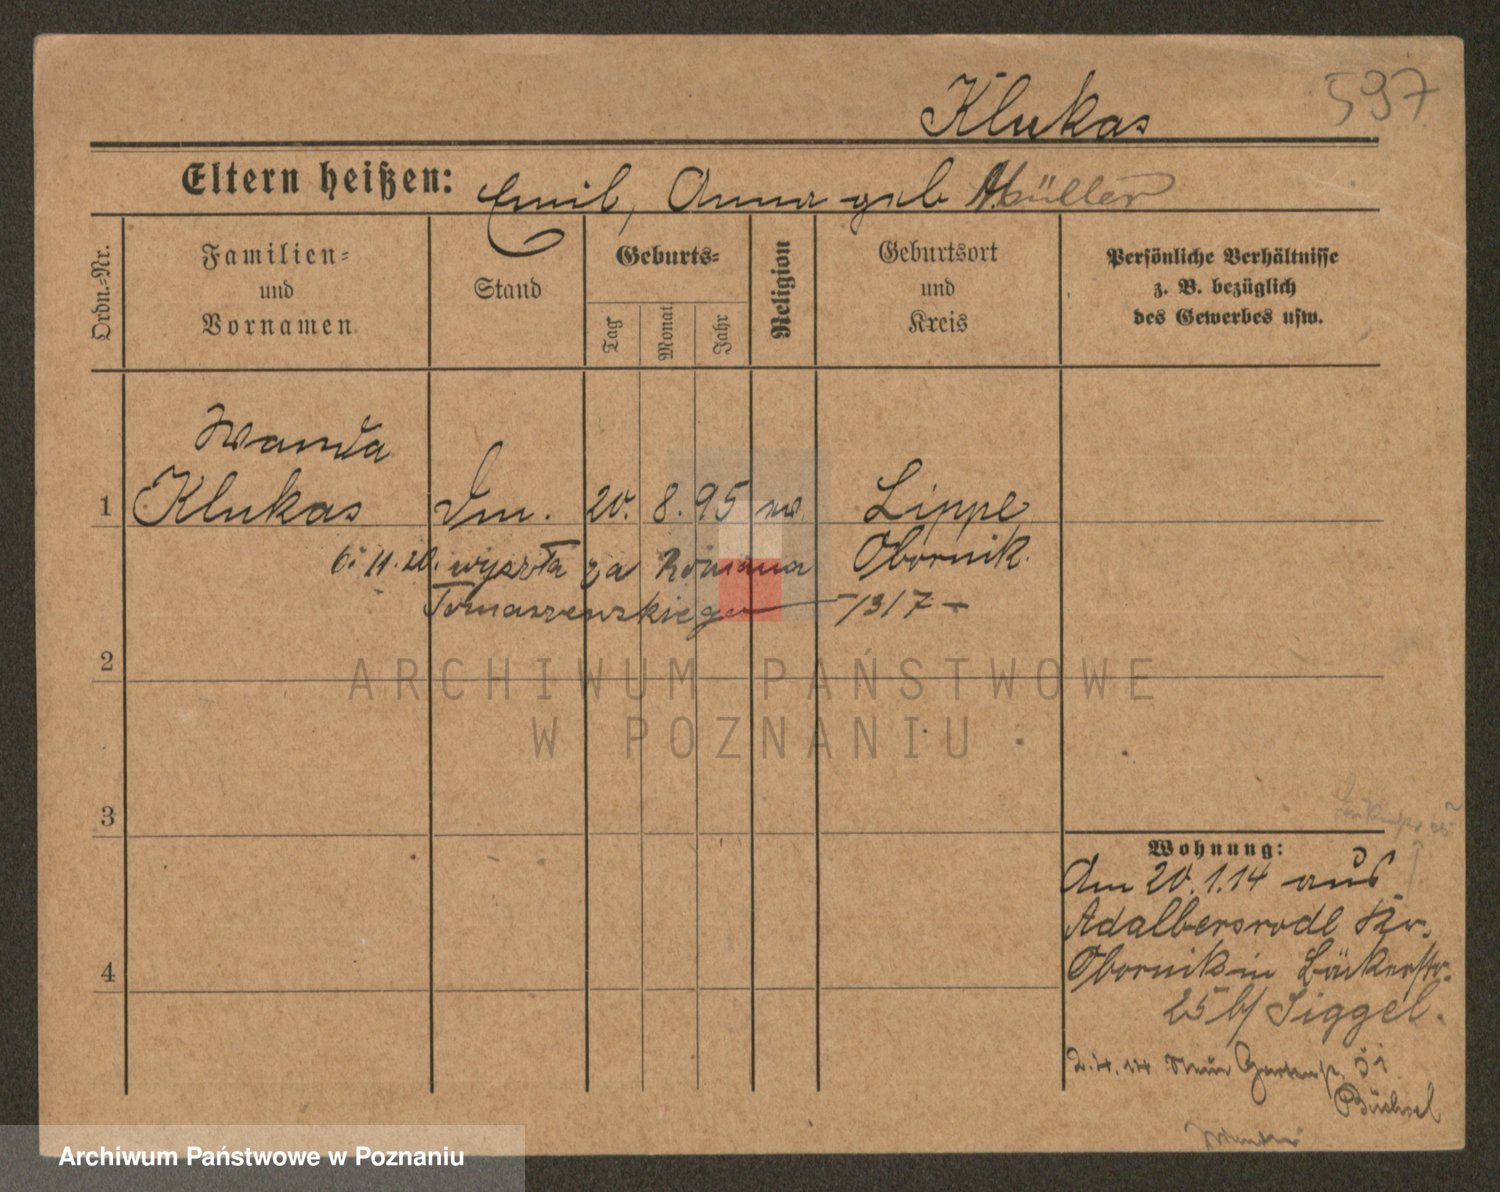 597
Klukas
Eltern heißen: Emil, Anna geb Müller
Ordn.-Nr.
Familien-
und
Vornamen
Stand
Geburts-
Tag
Monat
Jahr
Religion
Geburtsort
und
Kreis
Persönliche Verhältnisse
z. B. bezüglich
des Gewerbes usw.
Wanda
1 Klukas 20. 8. 95 Lippe
Obornik.
6. 11. 20. wyszła za Romana
Tomaszewskiego -1317-
2
3
4
Wohnung:
Am 20.1.14 aus
Adalbersrode Kr.
Obornik in Bäckerstr.
25 b/ Siggel.
2.4.14 Neue Gartenstr.
Büchsel
ARCHIWUM PAŃSTWOWE
W POZNANIU
Archiwum Państwowe w Poznaniu